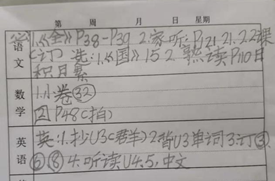 第 周 月 日 星期
语文 1.《全》P38-P39 2.家听:P121、21、22课
《订》选:1.《国》15 2.熟读P110日
积月累
数学 1.小卷(32)
2 P48(拍)
英语 英:1.抄U3(卷羊) 2.背U3单词 3.订③
⑥⑧ 4.听读U4.5,中文